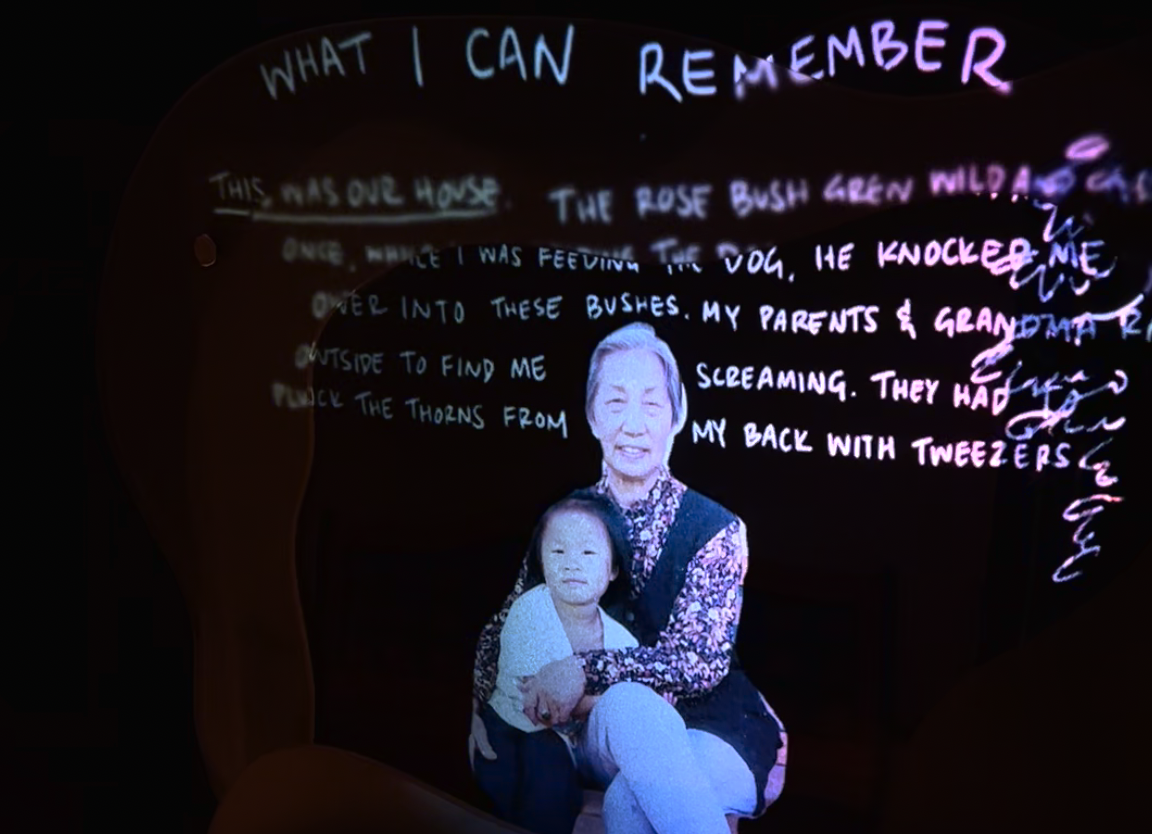 WHAT I CAN REMEMBER
THIS WAS OUR HOUSE. THE ROSE BUSH GREW WILD AND
ONCE, WHILE I WAS FEEDING THE DOG, HE KNOCKED ME
OVER INTO THESE BUSHES. MY PARENTS & GRANDMA
OUTSIDE TO FIND ME SCREAMING. THEY HAD TO
PLUCK THE THORNS FROM MY BACK WITH TWEEZERS